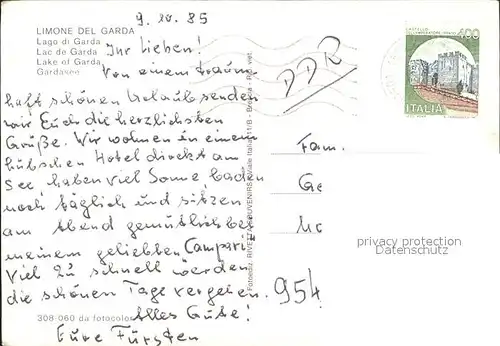 9. 10. 85
LIMONE DEL GARDA
Lago di Garda
Lac de Garda
Lake of Garda
Gardasee
Ihr Lieben!
Von einem traum-
haft schönen Urlaub senden
wir Euch die herzlichsten
Grüße. Wir wohnen in einem
hübschen Hotel direkt am
See, haben viel Sonne baden
noch täglich und sitzen
am Abend gemütlich bei
meinem geliebten Campari.
Viel zu schnell werden
die schönen Tage vergehen.
Alles Gute!
Eure Fürsten
308-060 da fotocolor
DDR
400
ITALIA
Fam.
Ge
954
privacy protection
Datenschutz